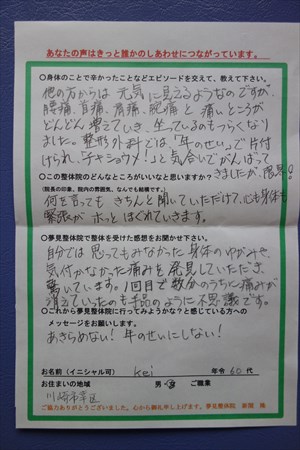 あなたの声はきっと誰かのしあわせにつながっています。
○身体のことで辛かったことなどエピソードを交えて、教えて下さい。
他の方からは元気に見えるようなのですが、
腰痛、首痛、肩痛、腕痛と痛いところが
どんどん増えていき、生っているのもつらくなり
ました。整形外科では、「年のせい」で片付
けられ、「チキショウメ！」と気合いでがんばって
きましたが、限界！
○この整体院のどんなところがいいですか？
(院長の印象、院内の雰囲気、なんでも結構です。)
何を言っても きちんと聞いていただけて、心も身体も
緊張が ホッと ほぐれていきます。
○夢見整体院で整体を受けた感想をお聞かせ下さい。
自分では思ってもみなかった身体のゆがみや、
気付かなかった痛みを発見していただき、
驚いています。1回目で数分のうちに痛みが
消えていったのも手品のように不思議です。
○これから夢見整体院に行ってみようかな？と感じている方への
メッセージをお願いします。
あきらめない！年のせいにしない！
お名前（イニシャル可） Kei 年令 60 代
お住まいの地域 男・女 ご職業
川崎市幸区
ご協力ありがとうございました。心から御礼申し上げます。夢見整体院 新田 隆